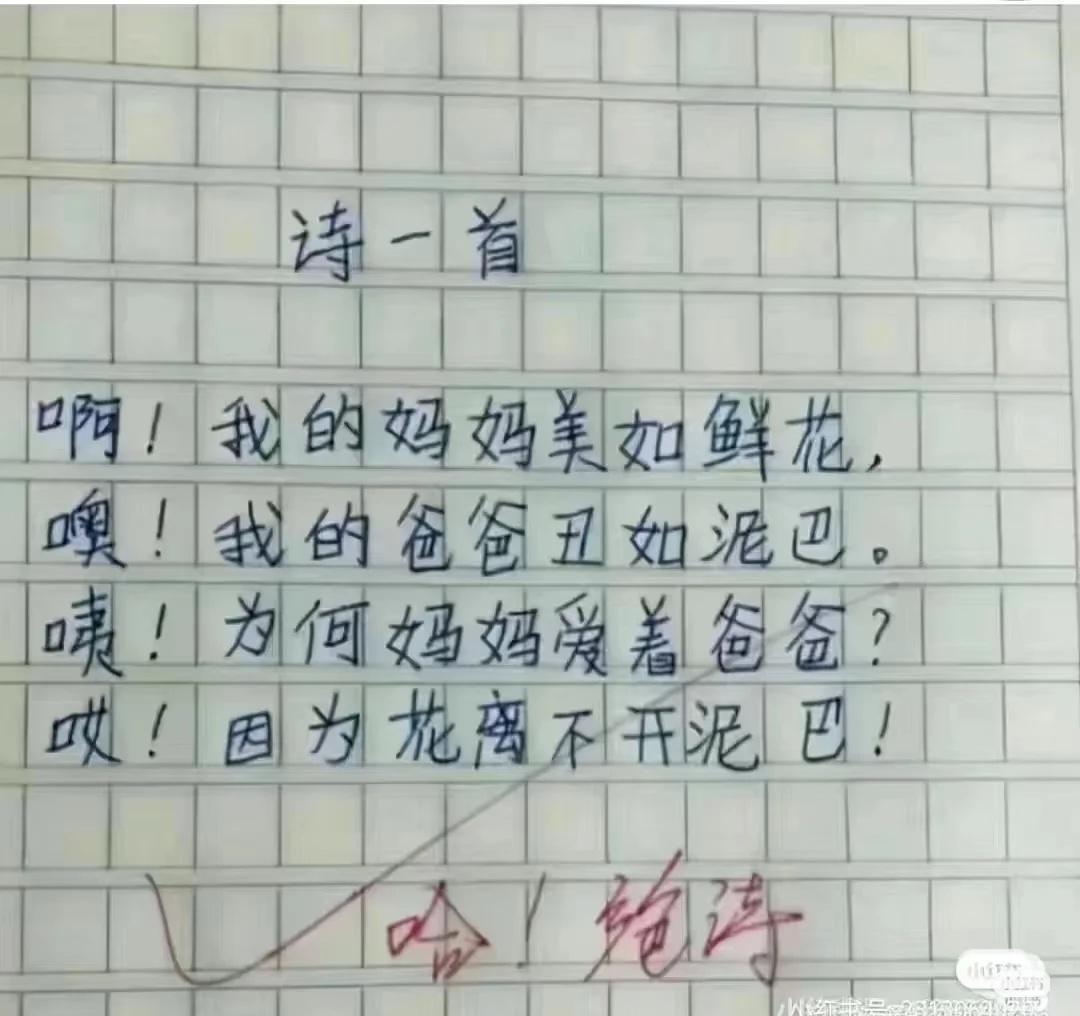 诗一首
啊！我的妈妈美如鲜花，
噢！我的爸爸丑如泥巴。
咦！为何妈妈爱着爸爸？
哎！因为花离不开泥巴！
哈！绝诗
小红书
小红书号